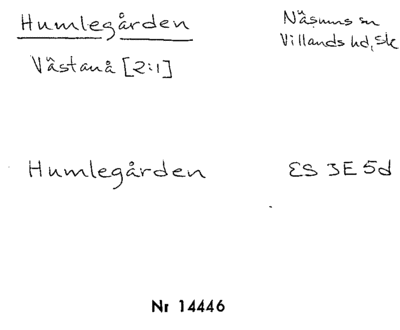 Humlegården
Näsums sn
Villands hd, Sk
Västanå [2:1]
Humlegården
ES 3E 5d
Nr 14446